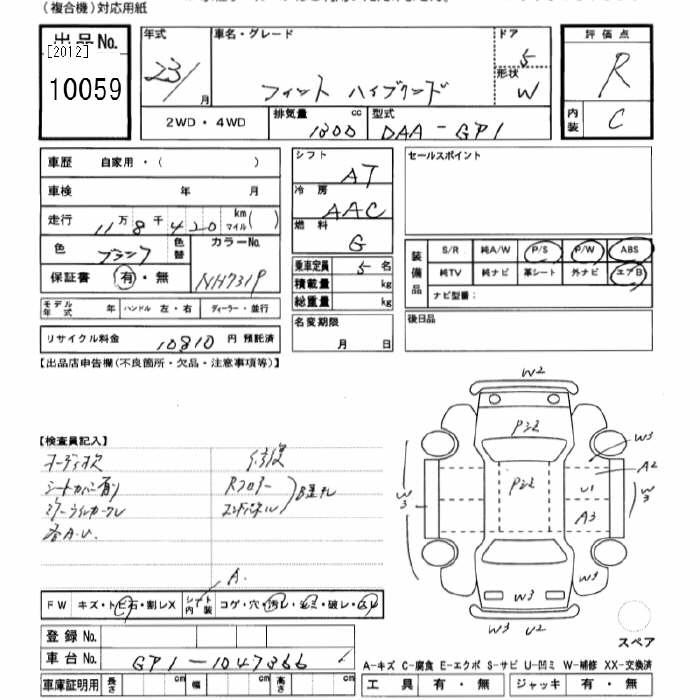 (複合機)対応用紙
出品No.
[2012]
10059
年式 車名・グレード ドア 評価点
23/ 月 フィット ハイブリッド 5 R
形状 W
2WD・4WD 排気量 1300 cc 型式 DAA-GP1 内装 C
車歴 自家用・( )
車検 年 月
走行 11万8千420 km マイル ( )
色 ブラック 色替 カラーNo.
保証書 有・無 NH731P
モデル年式 年 ハンドル 左・右 ディーラー・並行
リサイクル料金 10810 円 預託済
シフト AT
冷房 AAC
燃料 G
乗車定員 5 名
積載量 kg
総重量 kg
名変期限
月 日
セールスポイント
装備品 S/R 純A/W P/S P/W ABS
純TV 純ナビ 革シート 外ナビ エアB
ナビ型番:
後日品
【出品店申告欄(不良箇所・欠品・注意事項等)】
【検査員記入】
オーディオ欠 修復
シートカバー有り Rフロアー
ミラーウインカークレ エンドパネル
各A.U.
A.
FW キズ・トビ石・割レX シート内装 コゲ・穴・汚レ・キズ・破レ・スレ
登録No.
車台No. GP1-1047366
車庫証明用 長さ cm 幅 cm 高さ cm
W2
P22
W3
A2
P22
U1
W3
W3
A3
W3
W3
W3 U2
スペア
A-キズ C-腐食 E-エクボ S-サビ U-凹ミ W-補修 XX-交換済
工具 有・無 ジャッキ 有・無